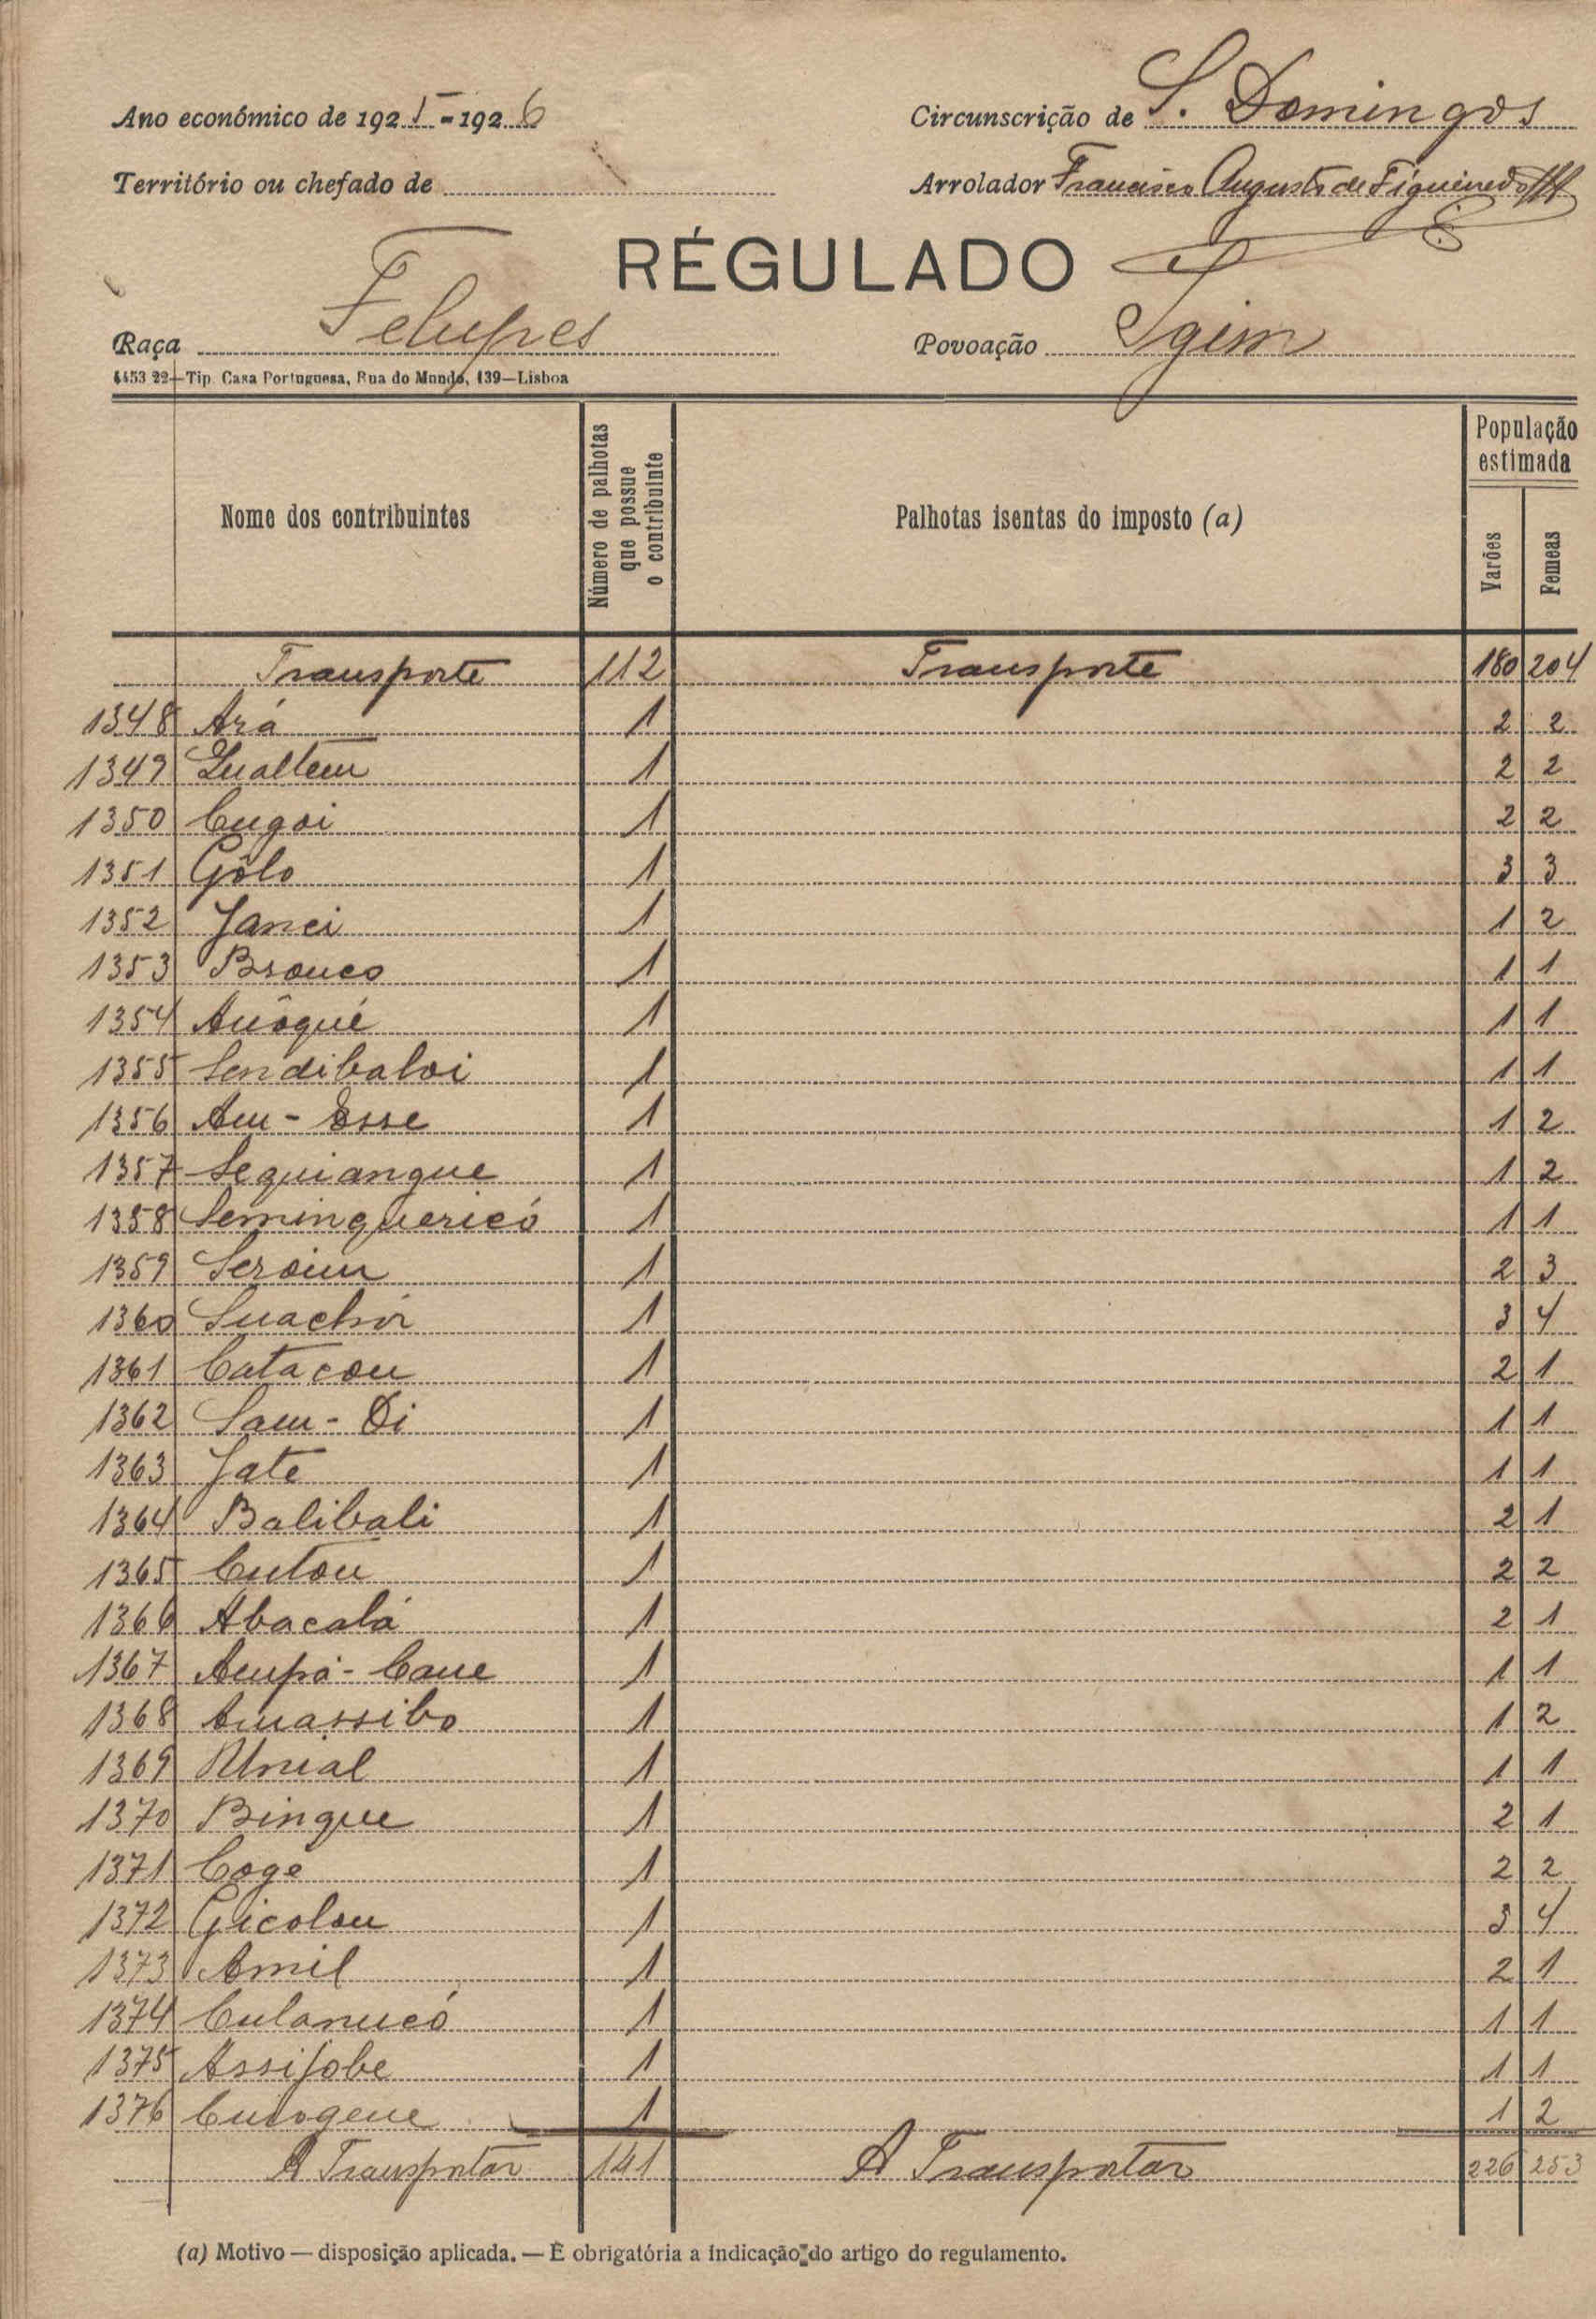 Ano económico de 1925-1926 Circunscrição de S. Domingos
Território ou chefado de Arrolador Francisco Augusto de Figueiredo
RÉGULADO
Raça Felupes Povoação Igim
4453 22—Tip. Casa Portuguesa, Rua do Mundo, 139—Lisboa
Nome dos contribuintes Número de palhotas que possue o contribuinte Palhotas isentas do imposto (a) População estimada Varões Femeas
Transporte 112 Transporte 180 204
1348 Ará 1 2 2
1349 1 2 2
1350 Cugoi 1 2 2
1351 Gôlo 1 3 3
1352 Janei 1 1 2
1353 Brouco 1 1 1
1354 Auôqué 1 1 1
1355 Sendibaloi 1 1 1
1356 Am-Esse 1 1 2
1357 Sequiangue 1 1 2
1358 Seminquericó 1 1 1
1359 Seroim 1 2 3
1360 Suachor 1 3 4
1361 Catacou 1 2 1
1362 Sam-Di 1 1 1
1363 Jate 1 1 1
1364 Balibali 1 2 1
1365 Cutou 1 2 2
1366 Abacalá 1 2 1
1367 Ampá-Caue 1 1 1
1368 Amassibo 1 1 2
1369 1 1 1
1370 Bingue 1 2 1
1371 Coge 1 2 2
1372 Gicolou 1 3 4
1373 Amil 1 2 1
1374 Culanucó 1 1 1
1375 Assifobe 1 1 1
1376 1 1 2
A Transportar 141 A Transportar 226 253
(a) Motivo — disposição aplicada. — É obrigatória a indicação do artigo do regulamento.